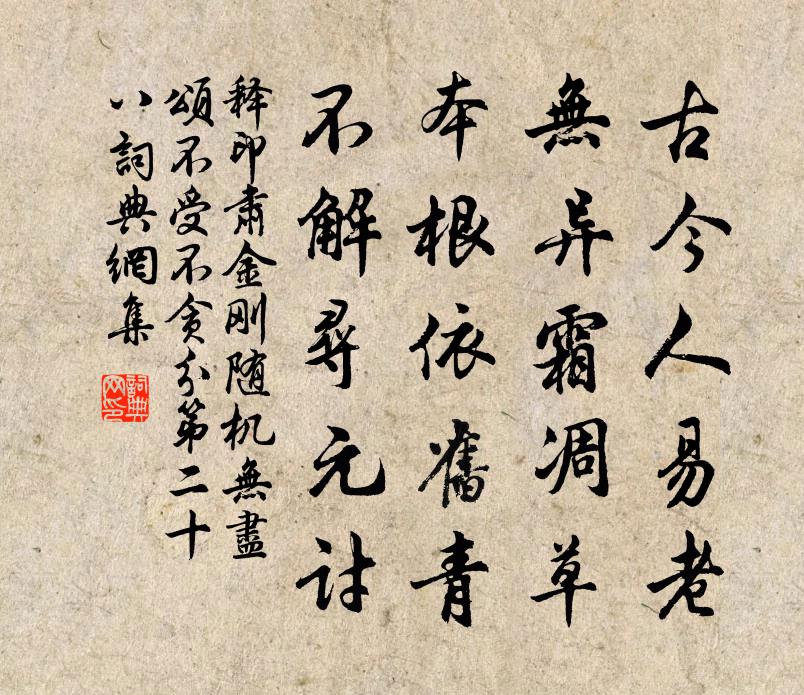 古今人易老
無异霜凋草
本根依舊青
不解尋元討
释印肃金刚随机無盡
頌不受不贪分第二十
八詞典網集
詞典
网印